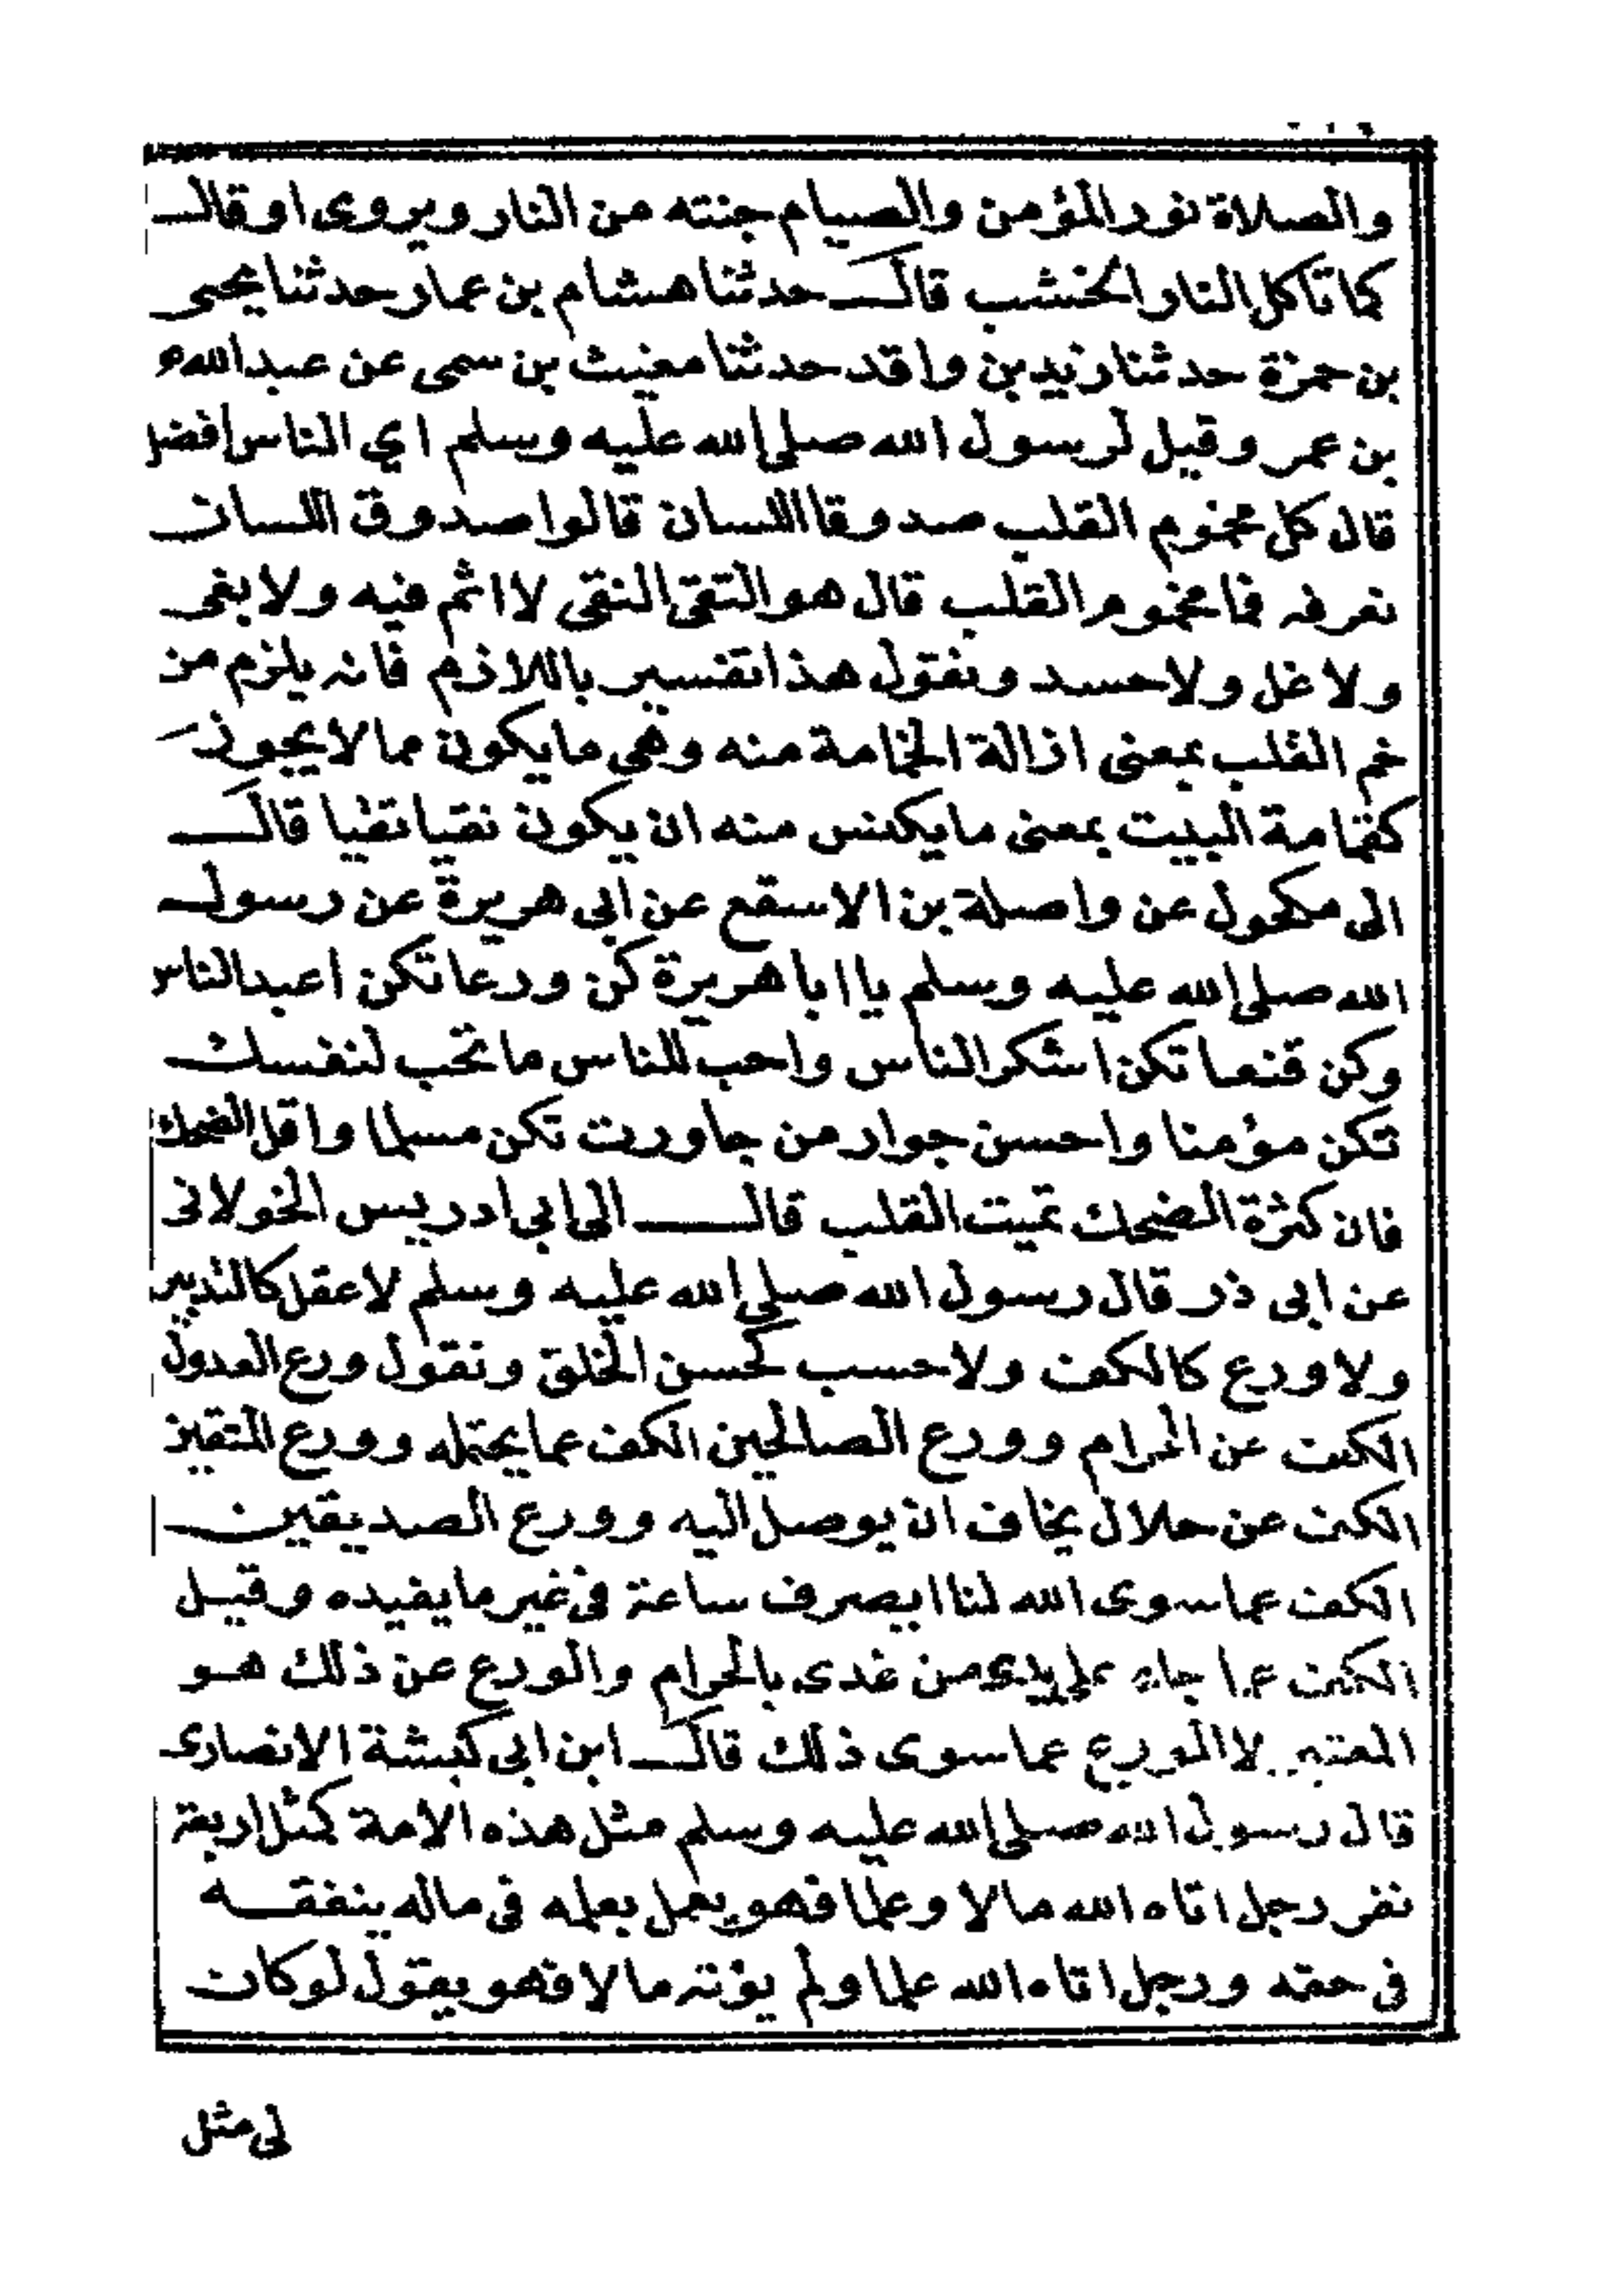 والصلاة نور المؤمن والصيام جنته من النار ويروى او قال
كما تاكل النار الخشب قال حدثنا هشام بن عمار حدثنا يحيى
بن حمزة حدثنا زيد بن واقد حدثنا مغيث بن سمى عن عبد الله
بن عمر وقيل لرسول الله صلى الله عليه وسلم اي الناس افضل
قال كل مخموم القلب صدوقا اللسان قالوا صدوق اللسان
نعرفه فما مخموم القلب قال هو التقى النقى لا اثم فيه ولا بغى
ولا غل ولا حسد ونقول هذا تفسير باللازم فانه يلزم من
خم القلب بمعنى ازالة الخامة منه وهى ما يكون مما لا يجوز
كقمامة البيت بمعنى ما يكنس منه ان يكون نقيا تقيا قال
الى مكحول عن واصلة بن الاسقع عن ابى هريرة عن رسول
الله صلى الله عليه وسلم يا ابا هريرة كن ورعا تكن اعبد الناس
وكن قنعا تكن اشكر الناس واحب للناس ما تحب لنفسك
تكن مؤمنا واحسن جوار من جاورت تكن مسلما واقل الضحك
فان كثرة الضحك تميت القلب قال الى ابى ادريس الخولانى
عن ابى ذر قال رسول الله صلى الله عليه وسلم لا عقل كالتدبير
ولا ورع كالكف ولا حسب كحسن الخلق ونقول ورع العدول
الكف عن الحرام وورع الصالحين الكف عما يحتمله وورع المتقين
الكف عن حلال يخاف ان يوصل اليه وورع الصديقين
الكف عما سوى الله لنا ايصرف ساعة فى غير ما يفيده وقيل
الكف عما جاء على يدى من غدى بالحرام والورع عن ذلك هو
المعتبر لا الورع عما سوى ذلك قال ابن ابى كبشة الانصارى
قال رسول الله صلى الله عليه وسلم مثل هذه الامة كمثل اربعة
نفر رجل اتاه الله مالا وعلما فهو يعمل بعلمه فى ماله ينفقه
فى حقه ورجل اتاه الله علما ولم يؤته مالا فهو يقول لو كان
لى مثل